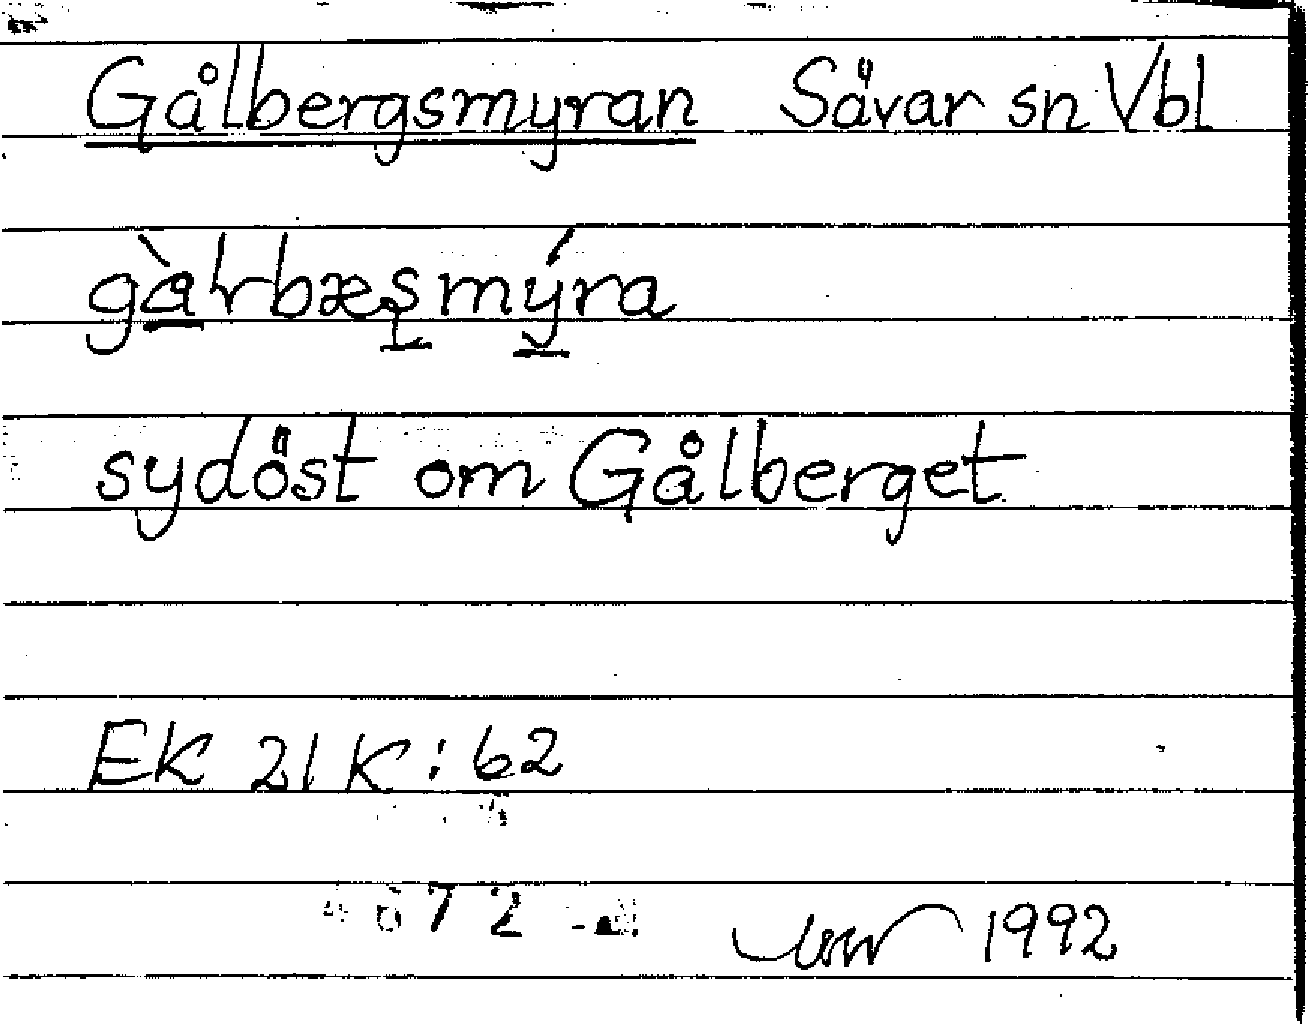 Gålbergsmyran Sävar sn Vbl
gàɫrbæʂmýra
sydöst om Gålberget
EK 21 K : 62
1992